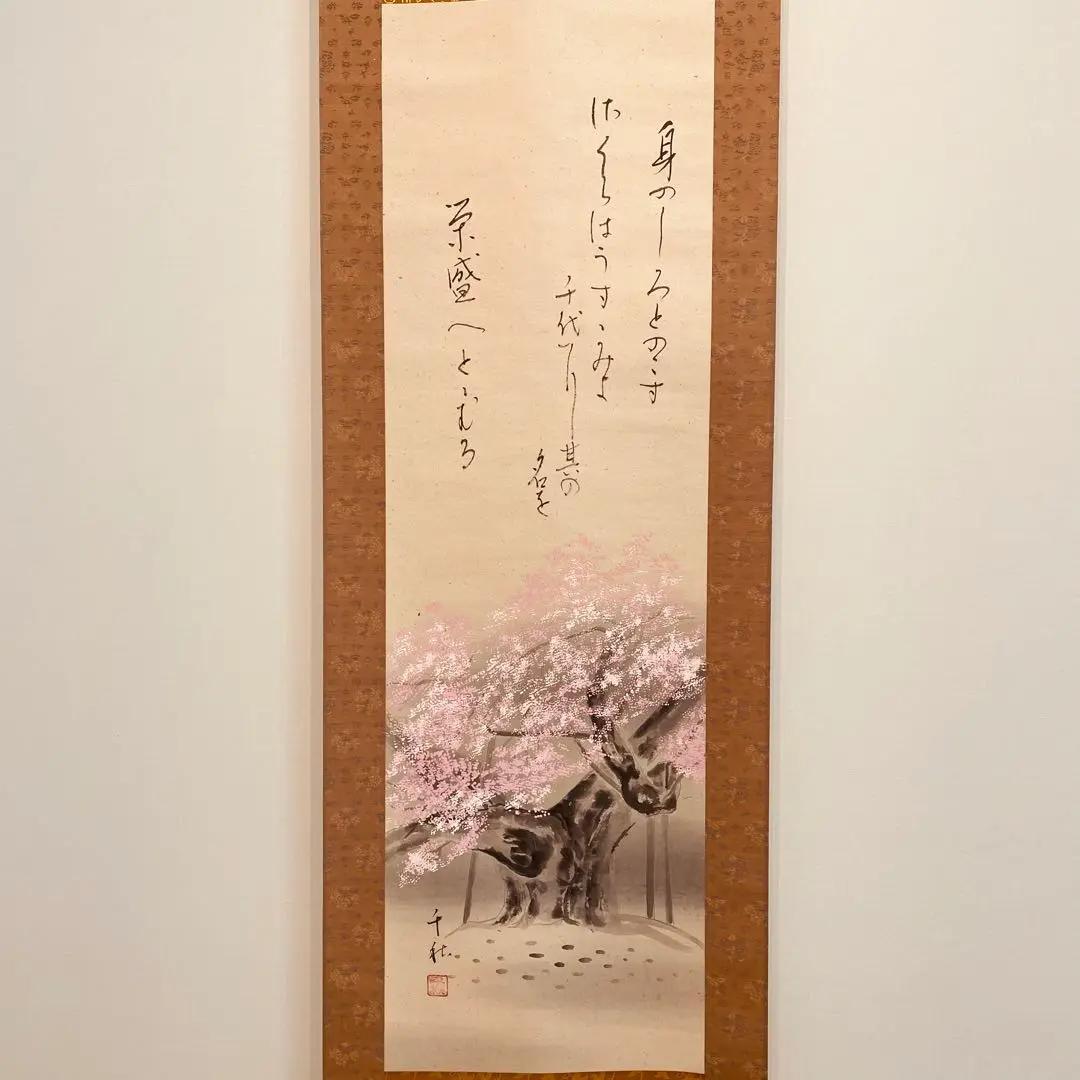 身のしろとのこす
さくらはうすゝみよ
千代 其の
名を
栄盛へとゝむる
千秋